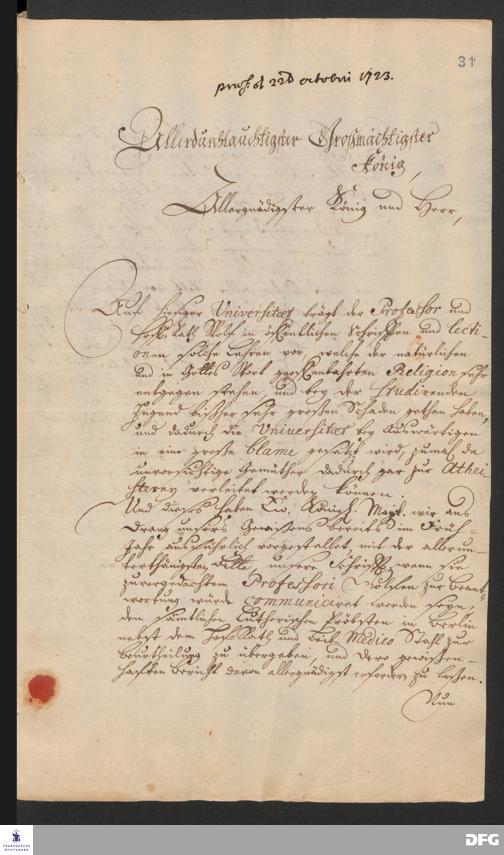 31
præs. d 22d octobris 1723.
Allerdurchlauchtigster Großmächtigster
König,
Allergnädigster König und Herr,
Auf hiesiger Universitæt trägt der Professor und
Hoff-Rath Wolf in öffentlichen Schrifften und lecti-
onen solche Lehren vor, welche der natürlichen
und in Gottes Wort geoffenbahrten Religion sehr
entgegen stehen, und bey der studirenden
Jugend bißher sehr großen Schaden gethan haben,
und dadurch die Universitæt bey Auswärtigen
in eine große blame gesetzt wird, zumal da
unvorsichtige Gemüther dadurch gar zur Athei-
sterey verleitet werden können.
Und dieses haben Ew. Königl. Mayt. wir aus
Drang unsers Gewissens bereits im Früh-
Jahr ausführlich vorgestellet, mit der allerun-
terthänigsten Bitte, unsere Schrifft, wenn sie
zuvorgedachtem Professori Wolfen zur Beant-
wortung würde communiciret worden seyn,
den sämtlichen Lutherischen Pröbsten in Berlin
nebst dem Hoff-Rath und Leib-Medico Stahl zur
Beurtheilung zu übergeben, und dero gewissen-
hafften Bericht davon allergnädigst erfordern zu lassen.
Nun
FRANCKESCHE
STIFTUNGEN
DFG